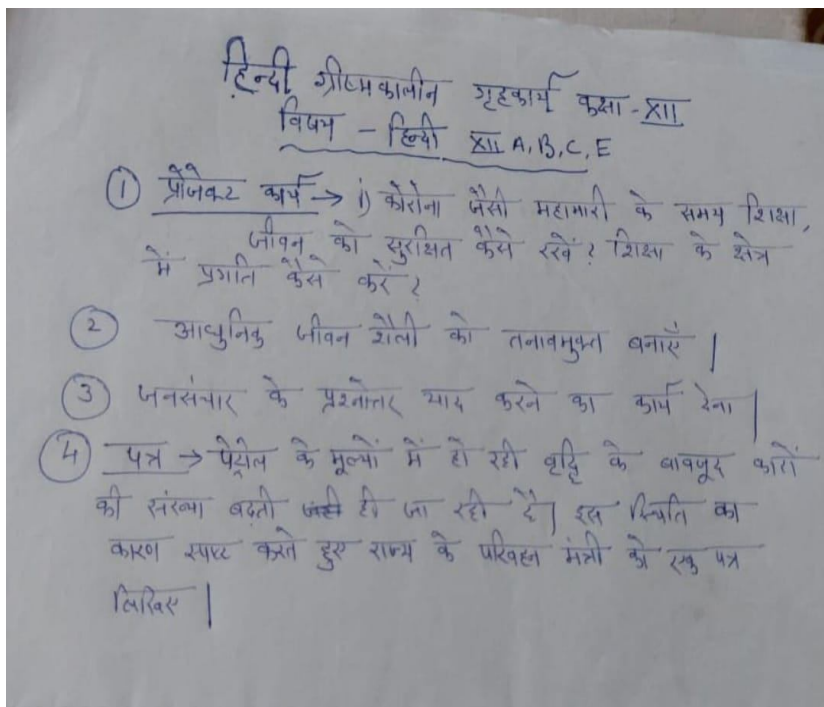 हिन्दी ग्रीष्मकालीन गृहकार्य कक्षा - XII
विषय - हिन्दी XII A, B, C, E
① प्रोजेक्ट कार्य → i) कोरोना जैसी महामारी के समय शिक्षा,
जीवन को सुरक्षित कैसे रखें? शिक्षा के क्षेत्र
में प्रगति कैसे करें?
② आधुनिक जीवन शैली को तनावमुक्त बनाएँ |
③ जनसंचार के प्रश्नोत्तर याद करने का कार्य देना |
④ पत्र → पेट्रोल के मूल्यों में हो रही वृद्धि के बावजूद कारों
की संख्या बढ़ती ही जा रही है| इस स्थिति का
कारण स्पष्ट करते हुए राज्य के परिवहन मंत्री को एक पत्र
लिखिए |